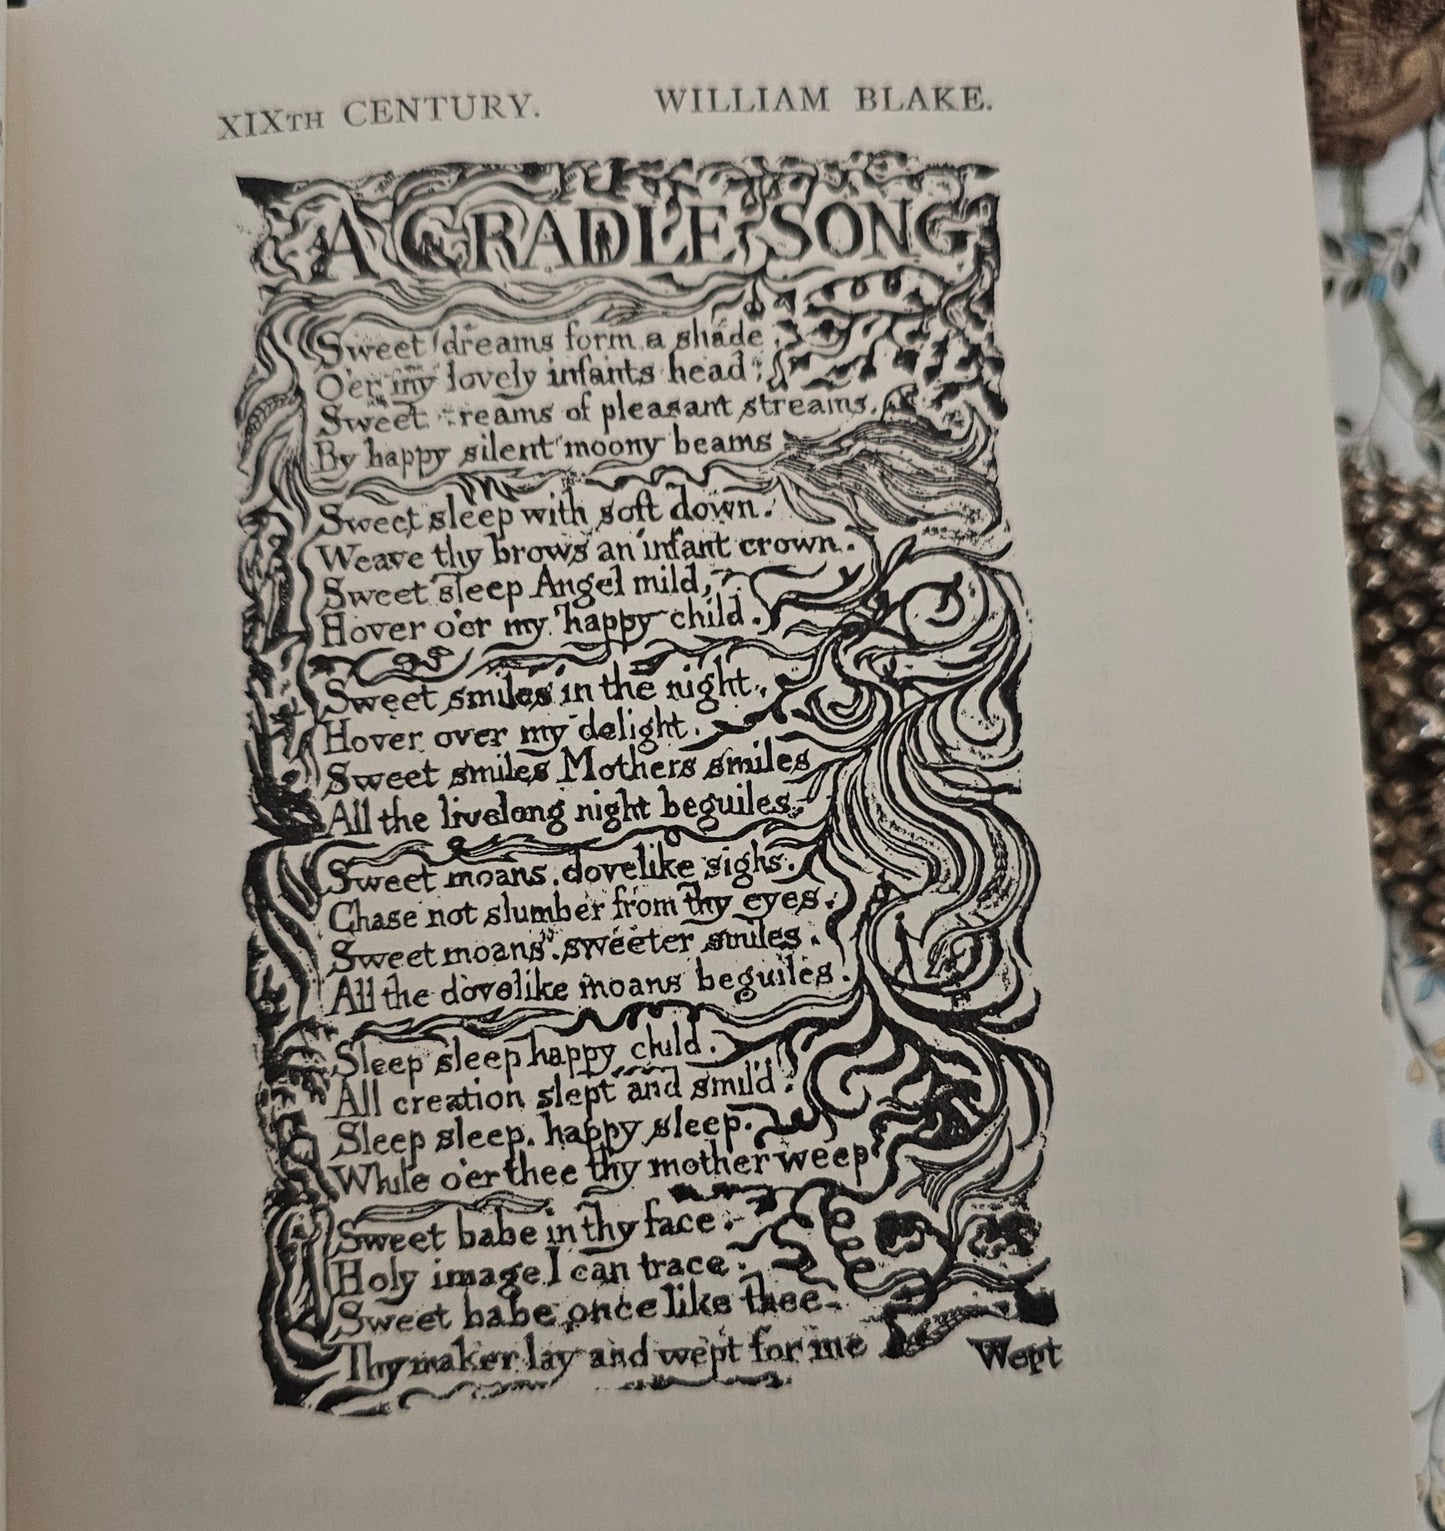 XIXTH CENTURY. WILLIAM BLAKE.
A CRADLE SONG
Sweet dreams form a shade
O'er my lovely infants head;
Sweet reams of pleasant streams.
By happy silent moony beams
Sweet sleep with soft down.
Weave thy brows an infant crown.
Sweet sleep Angel mild,
Hover o'er my happy child.
Sweet smiles in the night,
Hover over my delight.
Sweet smiles Mothers smiles
All the livelong night beguiles.
Sweet moans, dovelike sighs.
Chase not slumber from thy eyes.
Sweet moans, sweeter smiles.
All the dovelike moans beguiles.
Sleep sleep happy child.
All creation slept and smil'd.
Sleep sleep, happy sleep.
While o'er thee thy mother weep
Sweet babe in thy face.
Holy image I can trace.
Sweet babe once like thee.
Thy maker lay and wept for me
Wept